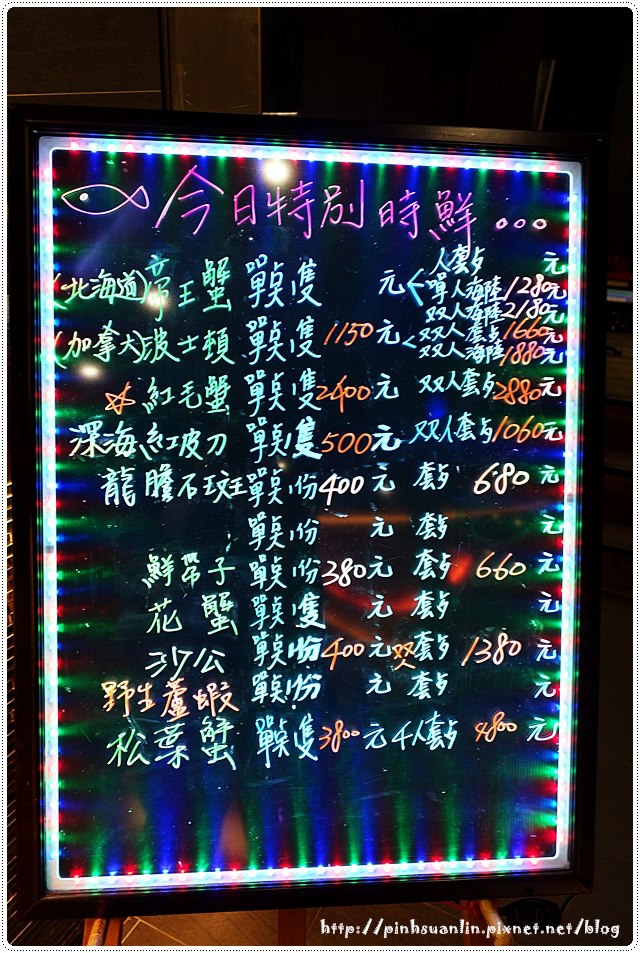 今日特別時鮮...
(北海道)帝王蟹 單點隻 元 人套點 元
單人海陸1280元
双人海陸2180元
(加拿大)波士頓 單點隻1150元 双人套點1660元
双人海陸1880元
紅毛蟹 單點隻2400元 双人套點2880元
深海紅皮刀 單點隻500元 双人套點1060元
龍膽石斑 單點份400元 套點 680元
單點份 元 套點 元
鮮帶子 單點份380元 套點 660元
花蟹 單點隻 元 套點 元
沙公 單點份400元 双套點 1380元
野生蘆蝦 單點份 元 套點 元
松葉蟹 單點隻3800元 4人套點 4800元
http://pinhsuanlin.pixnet.net/blog